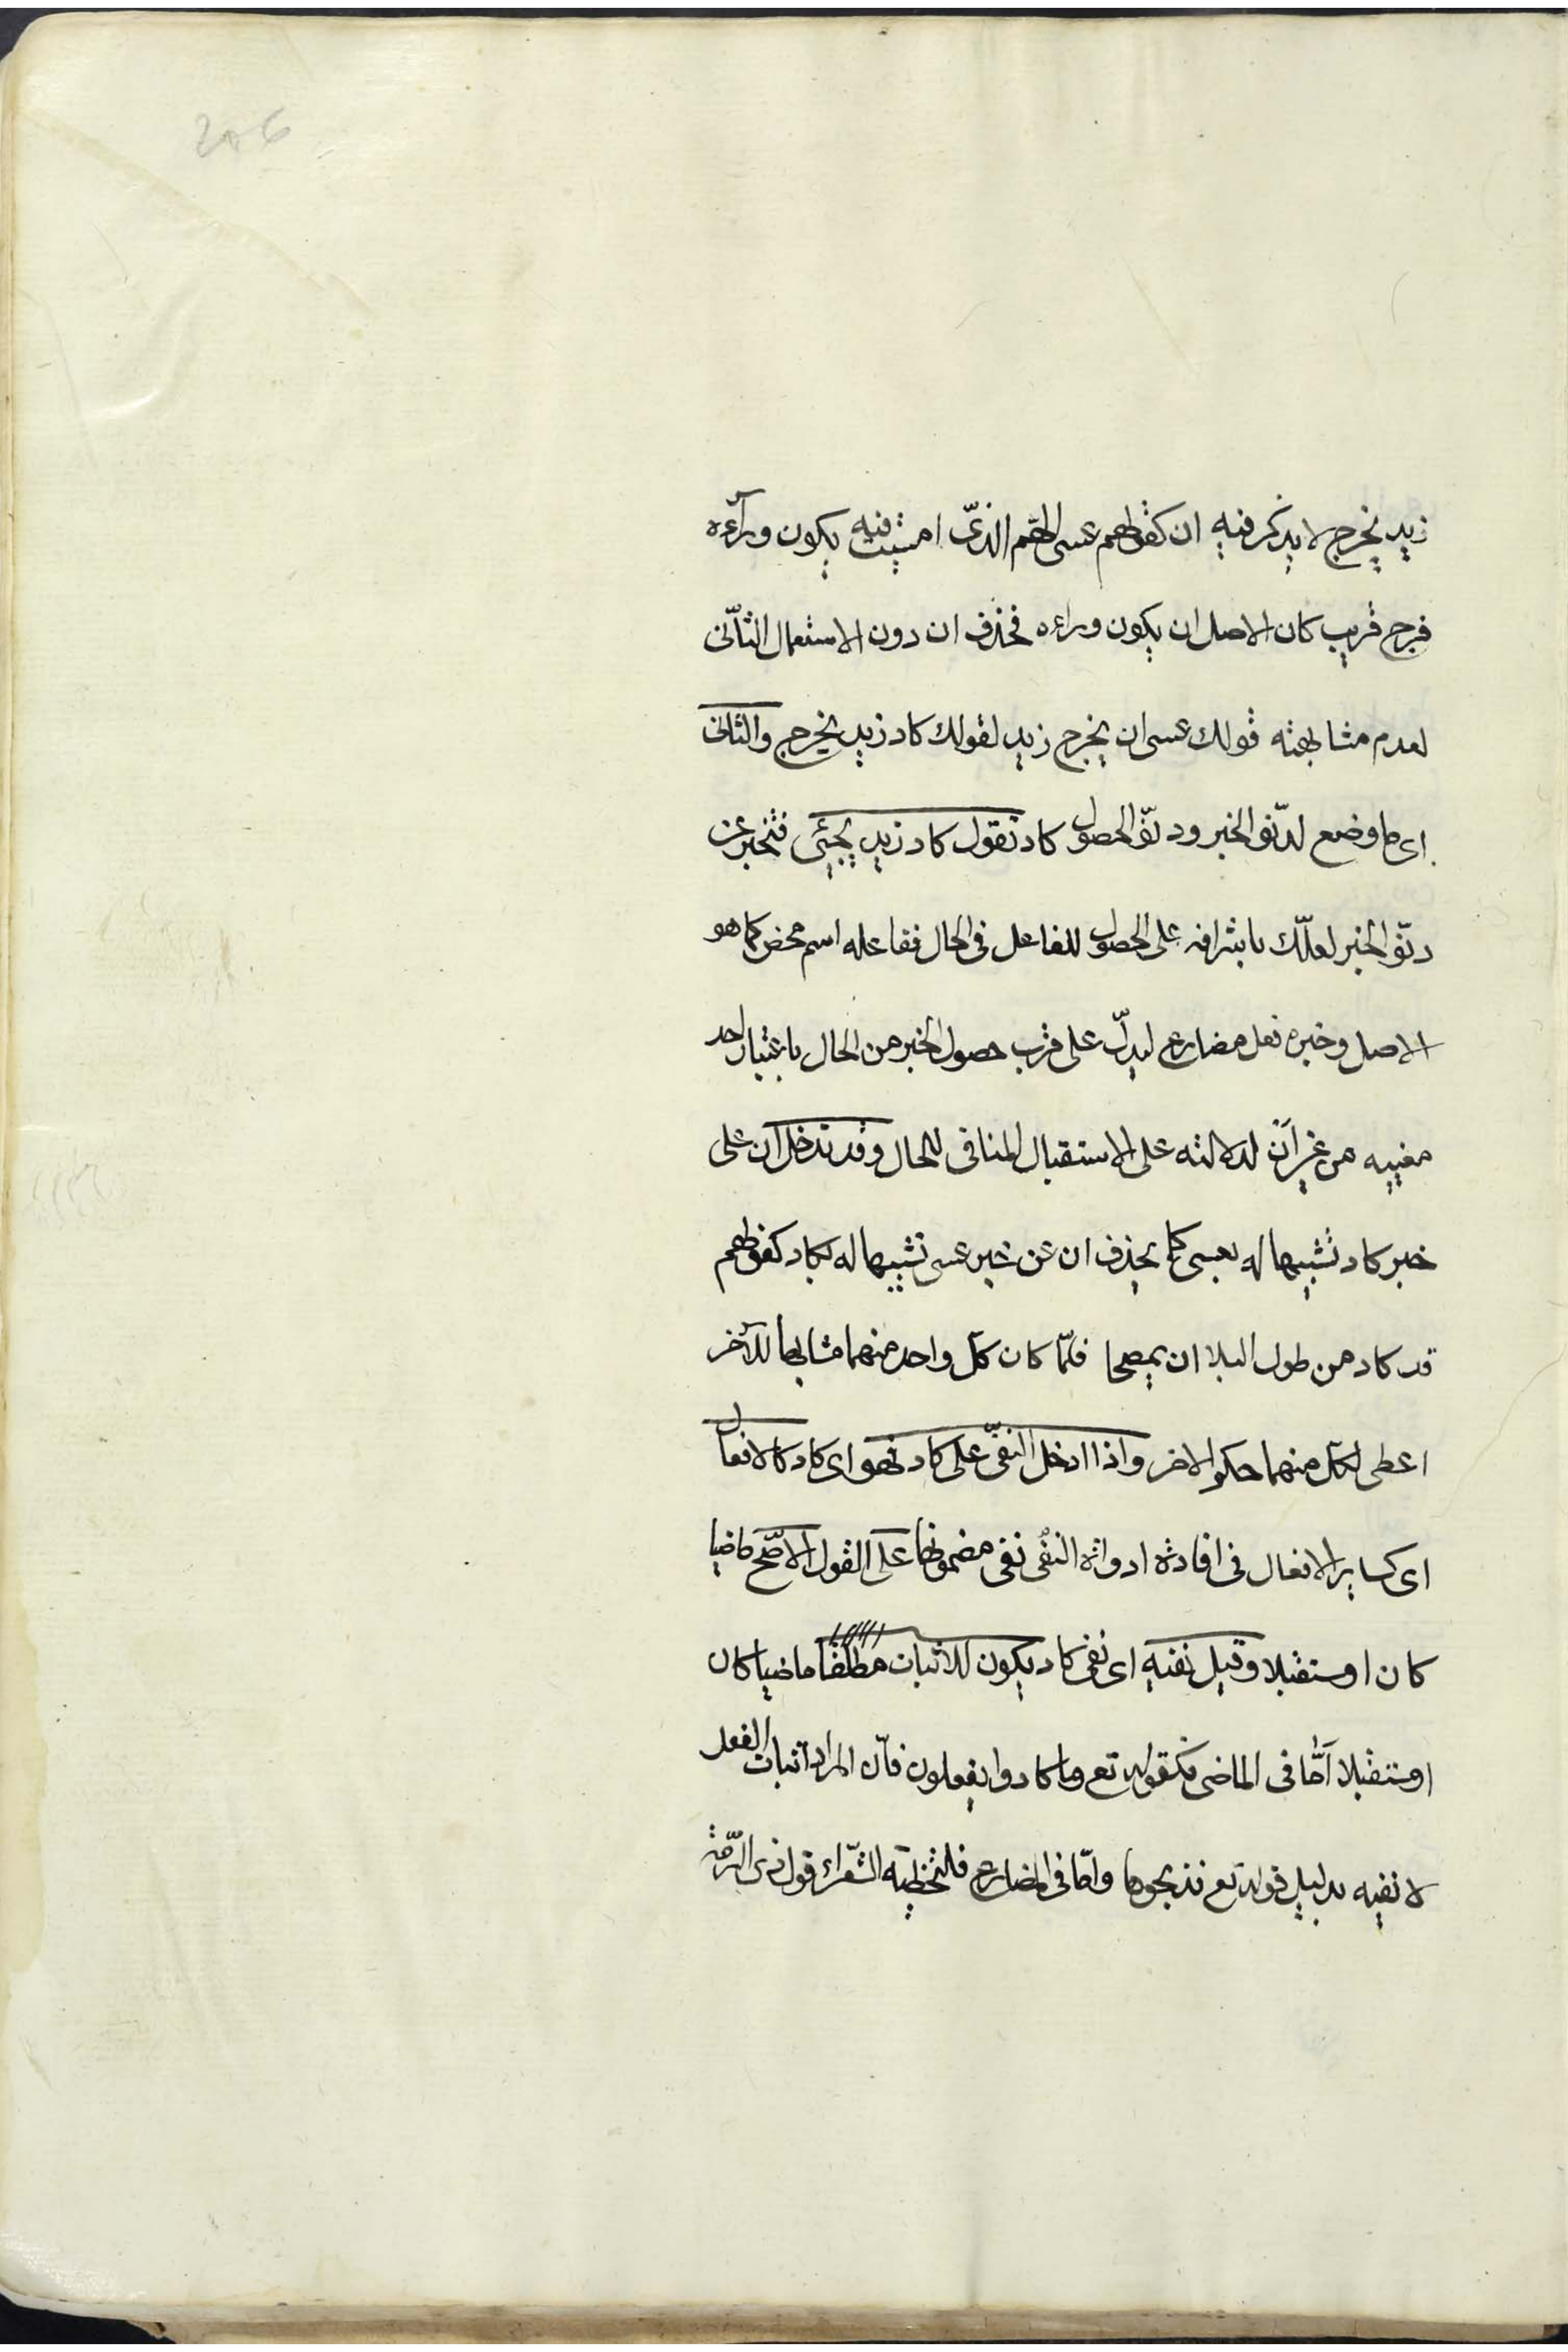 206
زيد يخرج لا يذكر فيه ان كقولهم عسى الهّم الذىّ امسيت فيه يكون ورآءه
فرج قريب كان الاصل ان يكون وراءه فحذف ان دون الاستعمال الثّانى
لعدم مشابهته قولك عسى ان يخرج زيد لقولك كاد زيد يخرج والثانى
اى ما وضع لدنّو الخبر ودنّو الحصول كاد تقول كاد زيد يجيئى فتخبر عن
دنّو الخبر لعلّك باشرافه على الحصول للفاعل فى الحال ففاعله اسم محض كما هو
الاصل وخبره فعل مضارع ليدلّ على قرب حصول الخبر من الحال باعتبار احد
معنييه من غير ان لدلالته على الاستقبال المنافى للحال وقد تدخل ان على
خبر كاد تشبيها له بعسى كما يحذف ان عن خبر عسى تشبيها له بكاد كقولهم
قد كاد من طول البلا ان يمصحا فلمّا كان كلّ واحد منهما مشابها للآخر
اعطى لكلّ منهما حكم الاخر واذا ادخل النفىّ على كاد فهو اى كاد كالافعال
اى كساير الافعال فى افادة ادواته النفى نفى مضمونها على القول الاصّح ماضيا
كان او مستقبلا وقيل نفيه اى نفى كاد يكون للاثبات مطلقا ماضيا كان
او مستقبلا امّا فى الماضى فكقوله تع وما كادوا يفعلون فانّ المراد اثبات الفعل
لا نفيه بدليل قوله تع فذبحوها وامّا فى المضارع فلتخطية الشّعراء قول ذى الرّمة